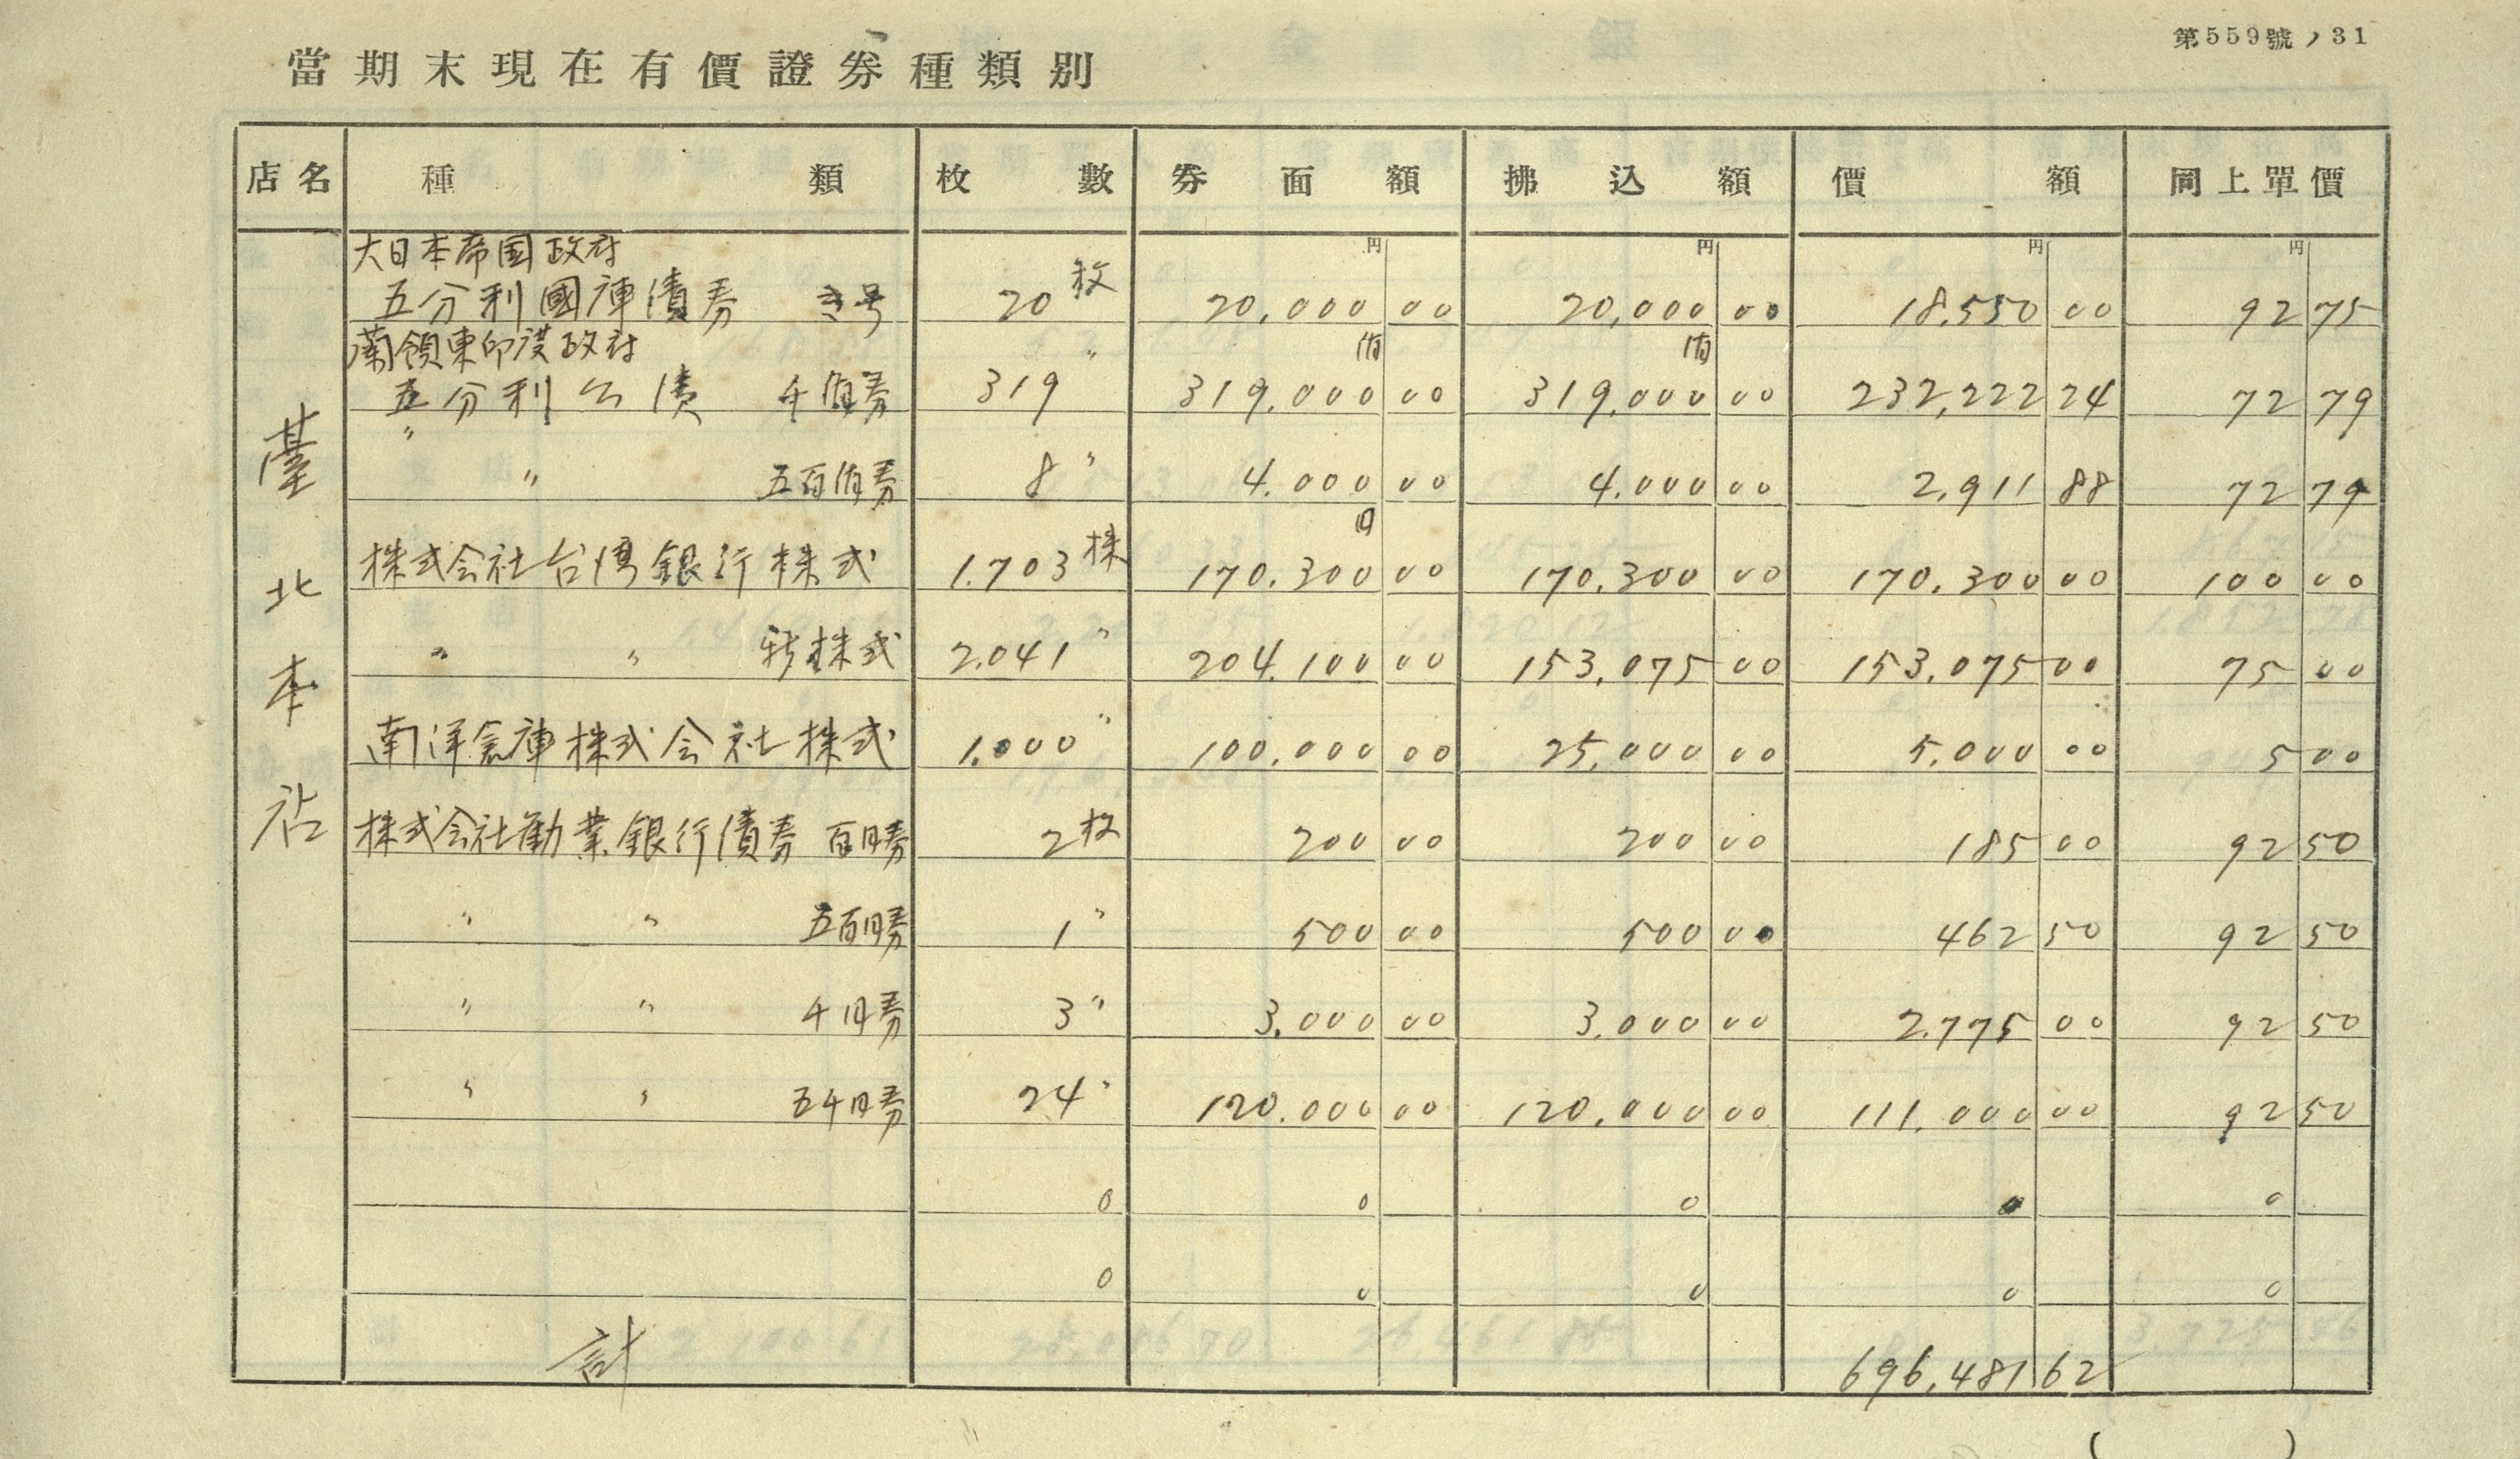 第559號ノ31
當期末現在有價證券種類別
店名 種類 枚數 券面額 拂込額 價額 同上單價
円 円 円 円
臺北本店
大日本帝国政府
五分利國庫債券 き号 20枚 20,000 00 20,000 00 18,550 00 92 75
蘭領東印度政府
五分利公債 千盾券 319〃 盾319,000 00 盾319,000 00 232,222 24 72 79
〃 〃 五百盾券 8〃 4,000 00 4,000 00 2,911 88 72 79
株式会社台湾銀行株式 1.703株 円170.300 00 170,300 00 170,300 00 100 00
〃 〃 新株式 2.041〃 204,100 00 153,075 00 153,075 00 75 00
南洋倉庫株式会社株式 1.000〃 100,000 00 25,000 00 5,000 00 5 00
株式会社勧業銀行債券 百円券 2枚 200 00 200 00 185 00 92 50
〃 〃 五百円券 1〃 500 00 500 00 462 50 92 50
〃 〃 千円券 3〃 3,000 00 3,000 00 2,775 00 92 50
〃 〃 五千円券 24〃 120,000 00 120,000 00 111,000 00 92 50
0 0 0 0 0
0 0 0 0 0
計 696,481 62
( )